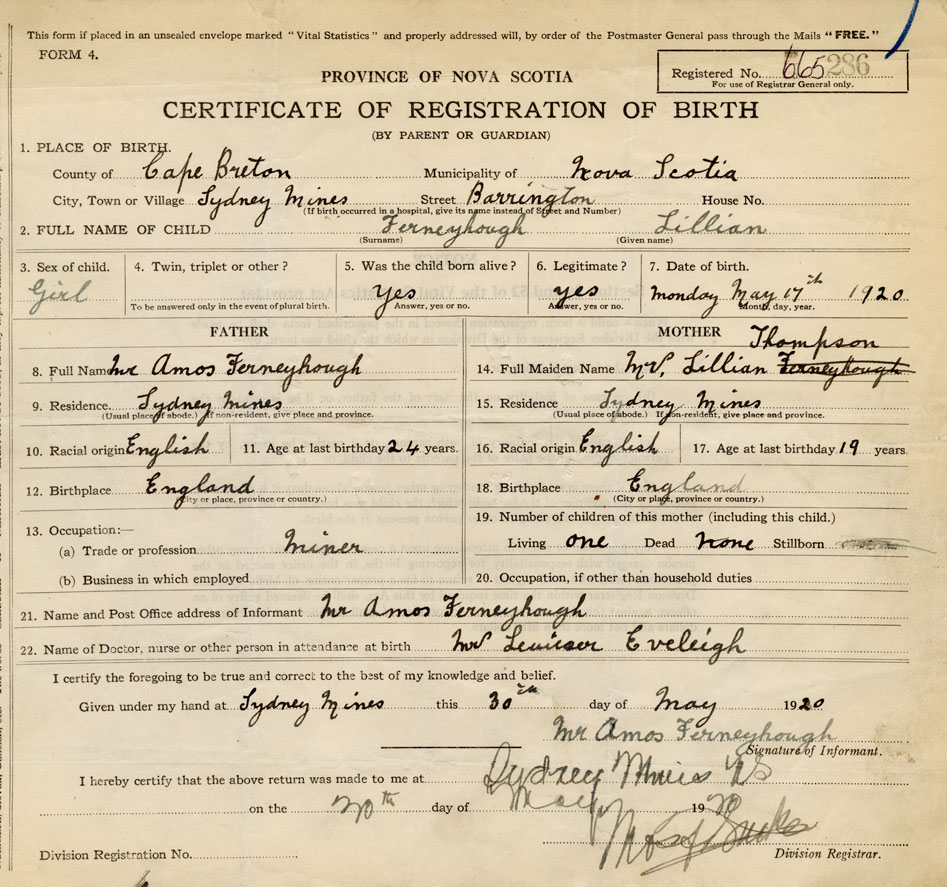 This form if placed in an unsealed envelope marked "Vital Statistics" and properly addressed will, by order of the Postmaster General pass through the Mails "FREE."
FORM 4.
Registered No. 665286
For use of Registrar General only.
PROVINCE OF NOVA SCOTIA
CERTIFICATE OF REGISTRATION OF BIRTH
(BY PARENT OR GUARDIAN)
1. PLACE OF BIRTH.
County of Cape Breton Municipality of Nova Scotia
City, Town or Village Sydney Mines Street Barrington House No.
(If birth occurred in a hospital, give its name instead of Street and Number)
2. FULL NAME OF CHILD Ferneyhough Lillian
(Surname) (Given name)
3. Sex of child. 4. Twin, triplet or other? 5. Was the child born alive? 6. Legitimate? 7. Date of birth.
Girl Yes yes Monday May 17th 1920
To be answered only in the event of plural birth. Answer, yes or no. Answer, yes or no. Month, day, year.
FATHER MOTHER Thompson
8. Full Name Mr Amos Ferneyhough 14. Full Maiden Name Mrs, Lillian Ferneyhough
9. Residence Sydney Mines 15. Residence Sydney Mines
(Usual place of abode.) If non-resident, give place and province. (Usual place of abode.) If non-resident, give place and province.
10. Racial origin English 11. Age at last birthday 24 years. 16. Racial origin English 17. Age at last birthday 19 years.
12. Birthplace England 18. Birthplace England
(City or place, province or country.) (City or place, province or country.)
13. Occupation:— 19. Number of children of this mother (including this child.)
(a) Trade or profession Miner Living one Dead none Stillborn
(b) Business in which employed 20. Occupation, if other than household duties
21. Name and Post Office address of Informant Mr Amos Ferneyhough
22. Name of Doctor, nurse or other person in attendance at birth Mrs Eveleigh
I certify the foregoing to be true and correct to the best of my knowledge and belief.
Given under my hand at Sydney Mines this 30th day of May 1920
Mr Amos Ferneyhough
Signature of Informant.
I hereby certify that the above return was made to me at Sydney Mines NS
on the day of May 1920
Division Registration No. Division Registrar.